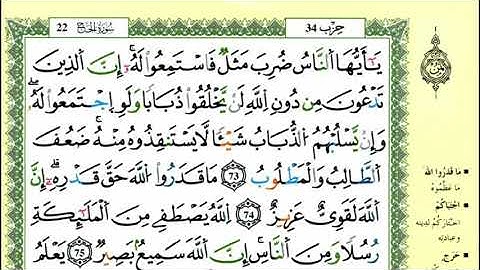 حِزْب 34
سُورَةُ الحَجّ 22
يَٰٓأَيُّهَا ٱلنَّاسُ ضُرِبَ مَثَلٌ فَٱسْتَمِعُوا۟ لَهُۥٓ ۚ إِنَّ ٱلَّذِينَ
تَدْعُونَ مِن دُونِ ٱللَّهِ لَن يَخْلُقُوا۟ ذُبَابًا وَلَوِ ٱجْتَمَعُوا۟ لَهُۥ ۖ
وَإِن يَسْلُبْهُمُ ٱلذُّبَابُ شَيْـًٔا لَّا يَسْتَنقِذُوهُ مِنْهُ ۚ ضَعُفَ
ٱلطَّالِبُ وَٱلْمَطْلُوبُ 73 مَا قَدَرُوا۟ ٱللَّهَ حَقَّ قَدْرِهِۦٓ ۗ إِنَّ
ٱللَّهَ لَقَوِىٌّ عَزِيزٌ 74 ٱللَّهُ يَصْطَفِى مِنَ ٱلْمَلَٰٓئِكَةِ
رُسُلًا وَمِنَ ٱلنَّاسِ ۚ إِنَّ ٱللَّهَ سَمِيعٌۢ بَصِيرٌ 75 يَعْلَمُ
مَا قَدَرُوا اللهَ
مَا عَظَّمُوهُ
اجْتَبَاكُمْ
اخْتَارَكُمْ لِدِينِهِ
وَعِبَادَتِهِ
حَرَجٍ